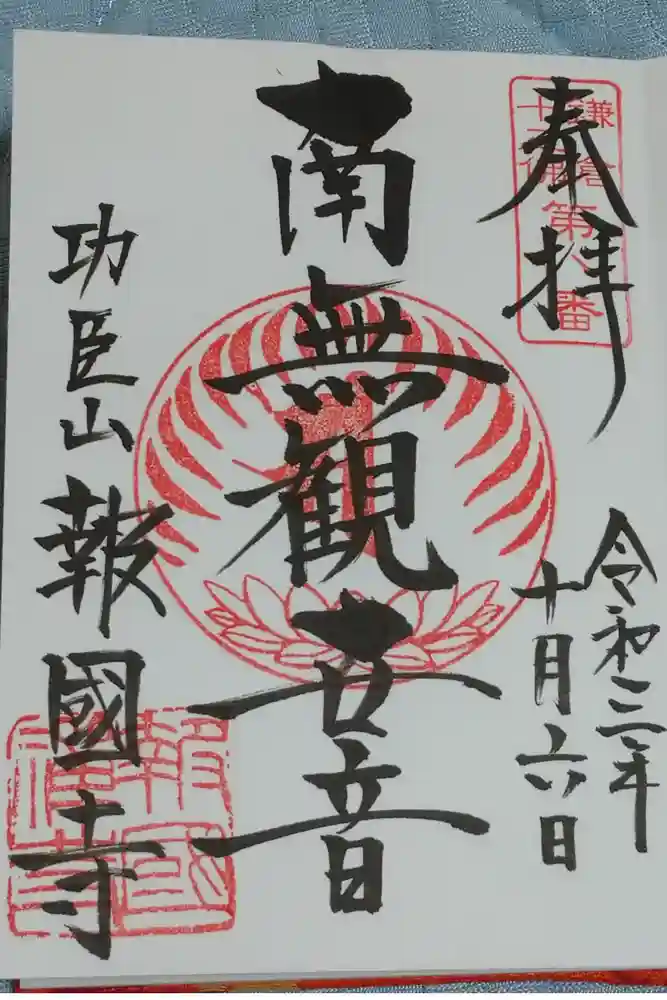 奉拝
鎌倉
十三佛
第八番
令和三年
十月六日
南無観世音
功臣山報國寺
報國